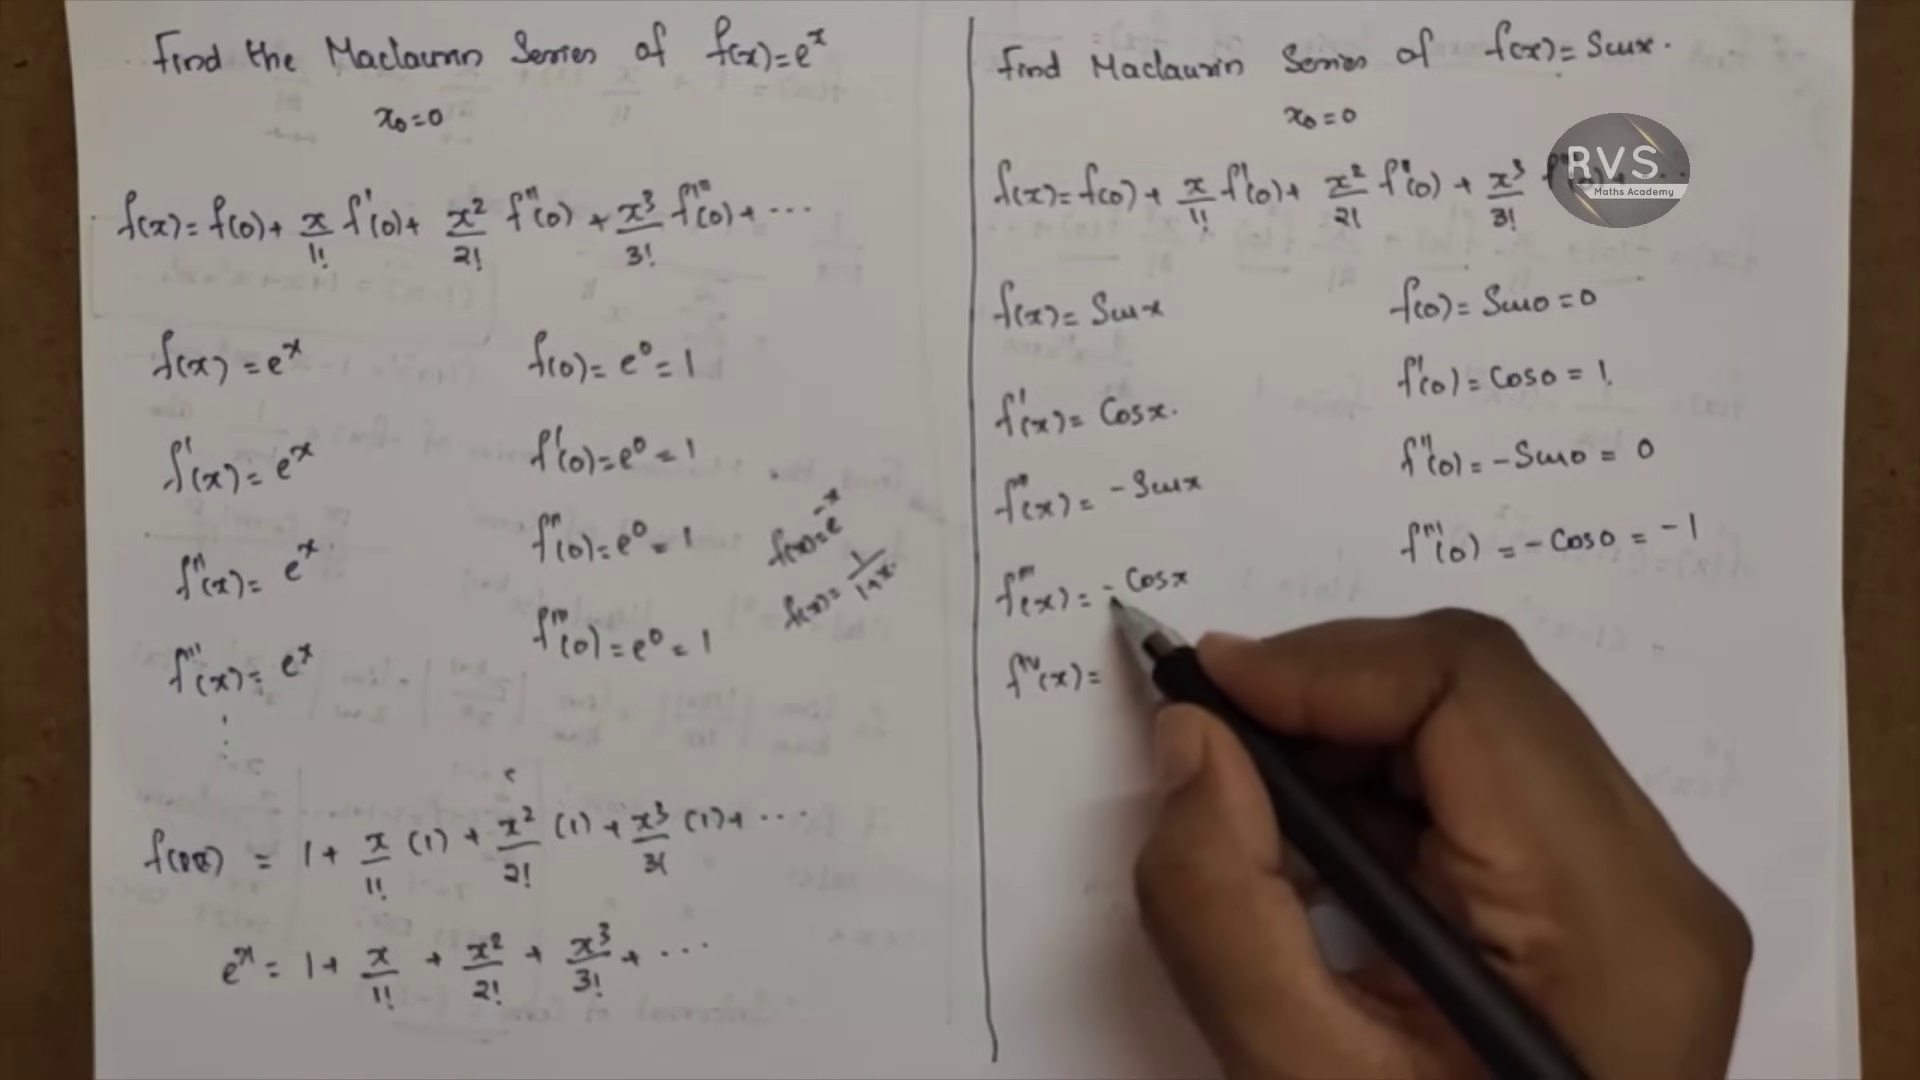 Find the Maclaurin Series of f(x)=e^x
x₀=0
f(x)= f(0)+ x/1! f'(0)+ x²/2! f''(0) + x³/3! f'''(0)+ ...
f(x) = e^x f(0)= e⁰= 1
f'(x)= e^x f'(0)=e⁰=1
f''(x)= e^x f''(0)=e⁰=1
f'''(x)= e^x f'''(0)=e⁰=1
f(x)=e^-x
f(x)= 1/1+x
= 1+ x/1! (1) + x²/2! (1) + x³/3! (1)+ ...
e^x = 1+ x/1! + x²/2! + x³/3! + ...
Find Maclaurin Series of f(x)= Sinx.
x₀=0
f(x)= f(0)+ x/1! f'(0)+ x²/2! f''(0) + x³/3!
RVS
Maths Academy
f(x)= Sinx f(0)= Sin0=0
f'(x)= Cosx. f'(0)= Cos0 = 1.
f''(x)= -Sinx f''(0)= -Sin0 = 0
f'''(x)= -Cosx f'''(0) = -Cos0 = -1
f^IV(x)=